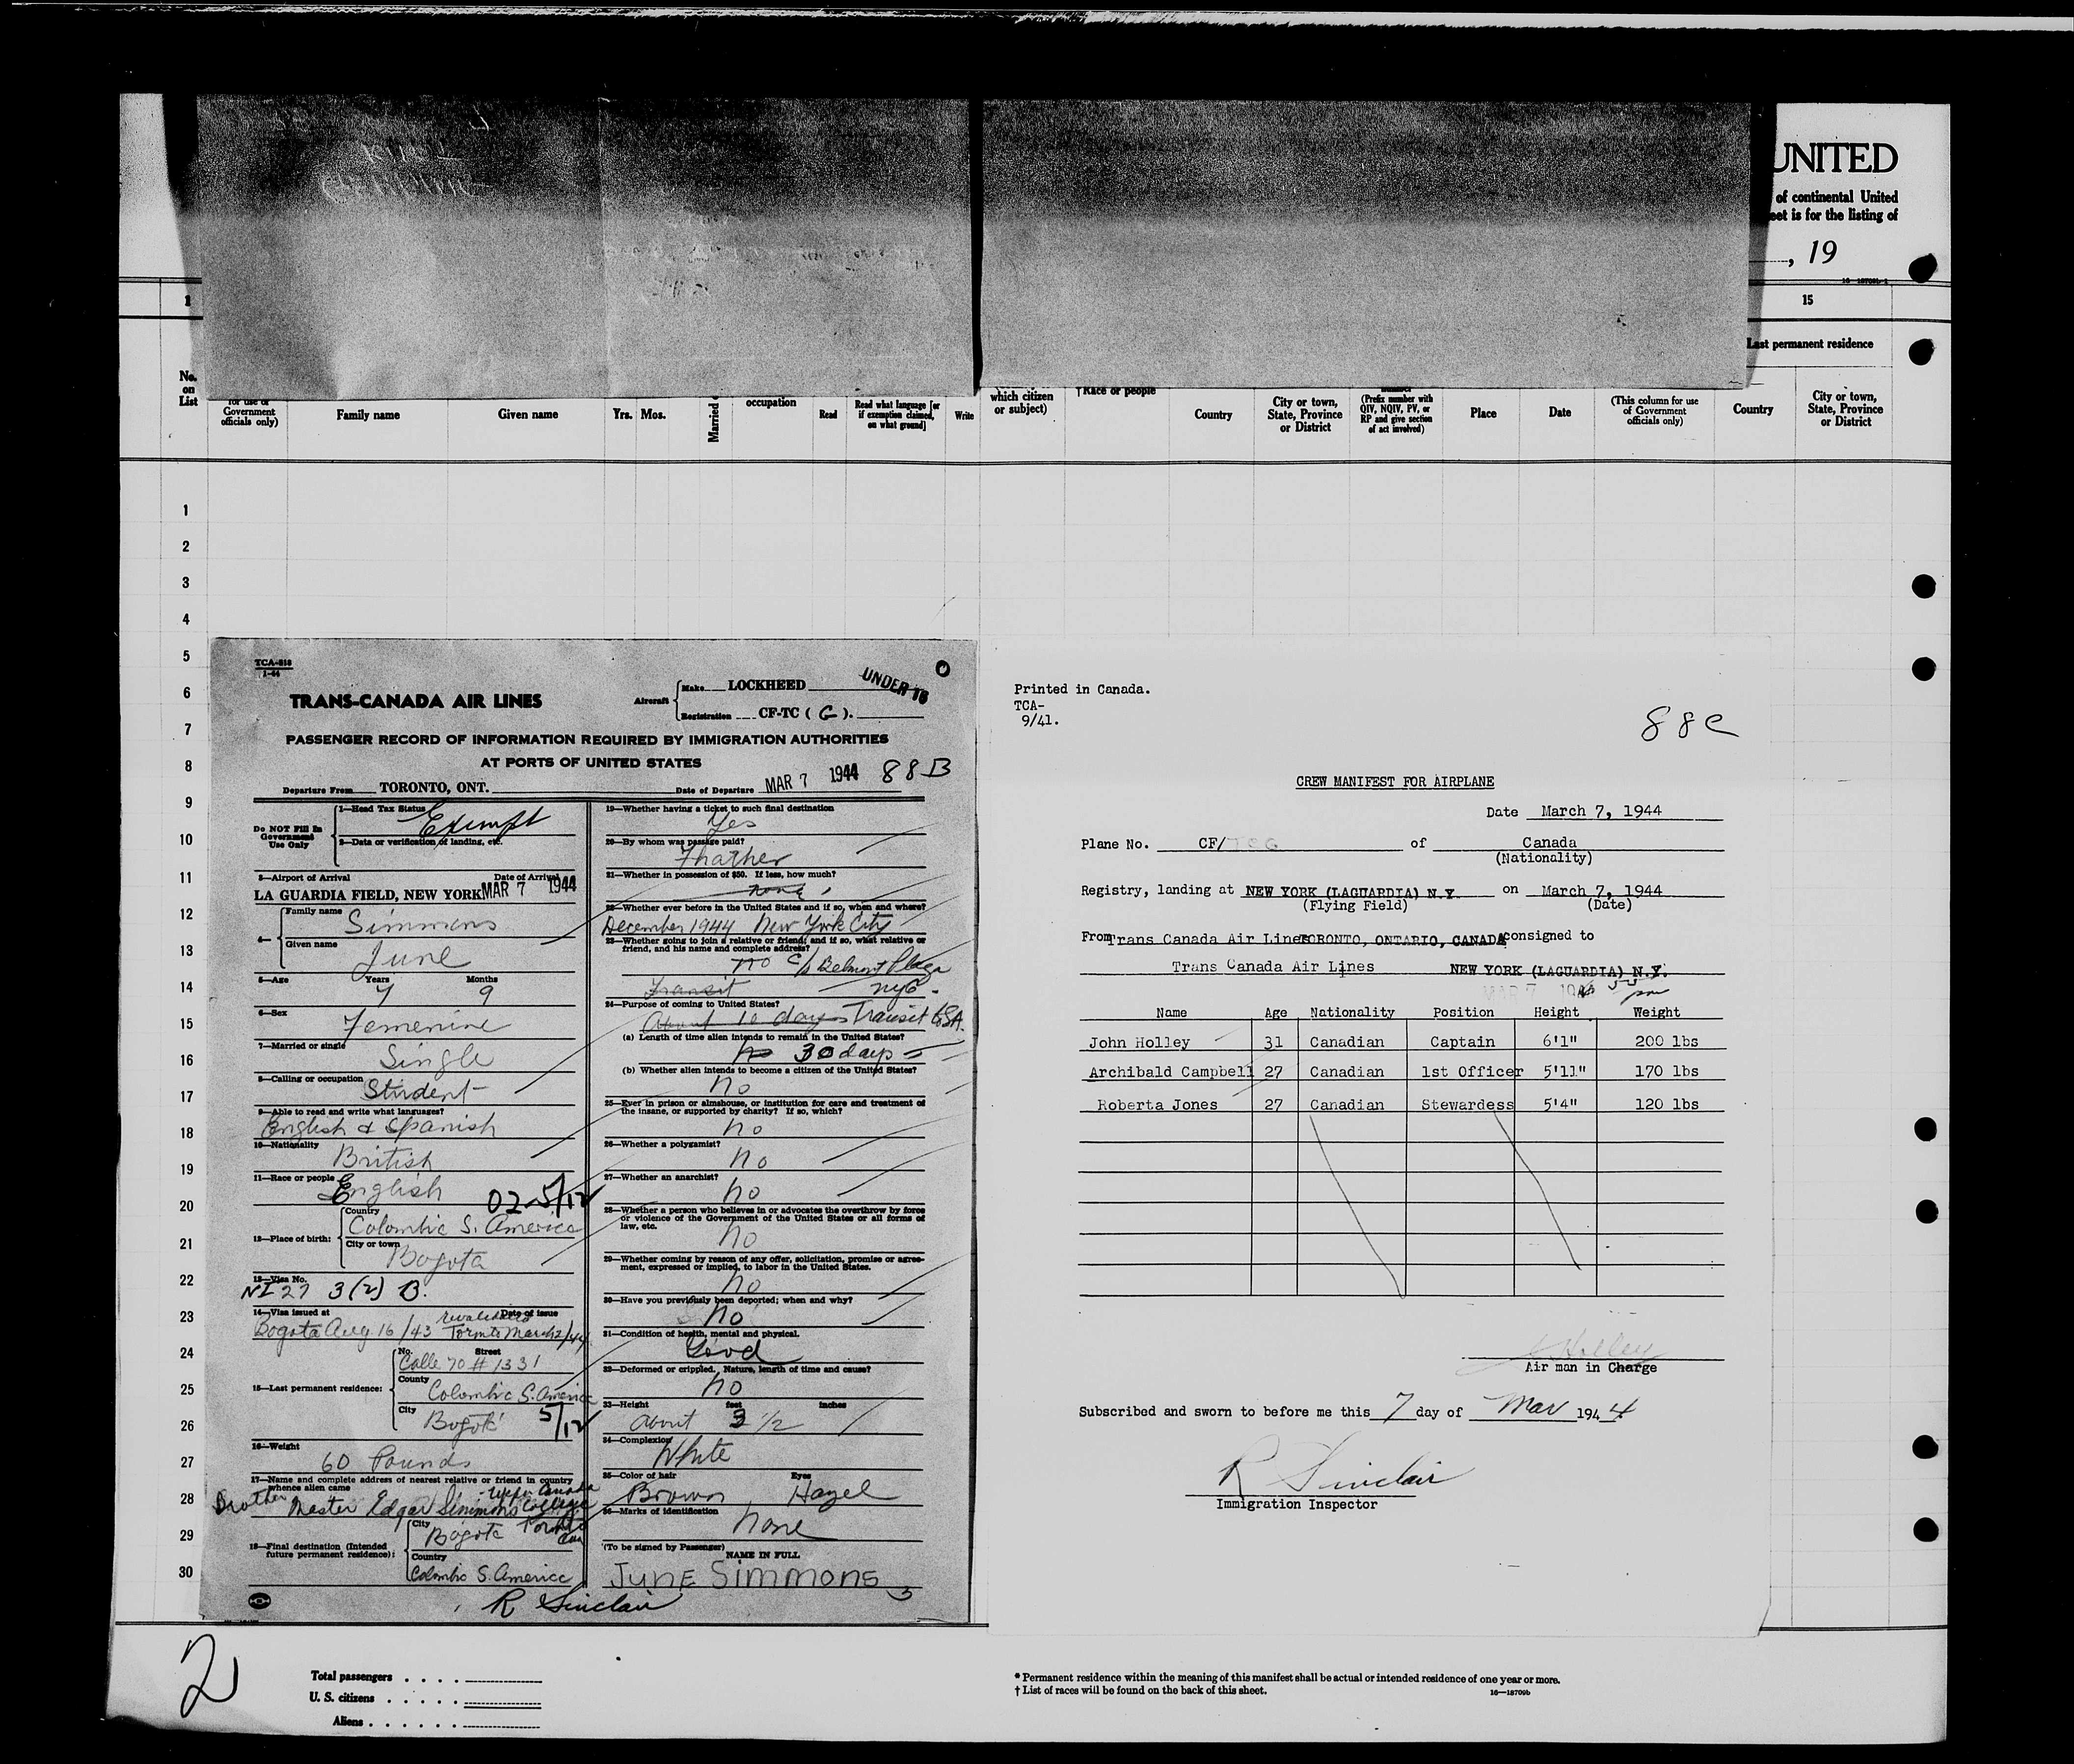 UNITED
of continental United
eet is for the listing of
, 19
16—18709b-1
1
15
Last permanent residence
No.
on
List
for use of
Government
officials only)
Family name
Given name
Yrs. Mos.
Married
occupation
Read
Read what language [or
if exemption claimed,
on what ground]
Write
which citizen
or subject)
†Race or people
Country
City or town,
State, Province
or District
number
(Prefix number with
QIV, NQIV, PV, or
RP and give section
of act involved)
Place
Date
(This column for use
of Government
officials only)
Country
City or town,
State, Province
or District
1
2
3
4
5
6
7
8
9
10
11
12
13
14
15
16
17
18
19
20
21
22
23
24
25
26
27
28
29
30
TCA-818
1-44
TRANS-CANADA AIR LINES
Aircraft
Make LOCKHEED
UNDER 16
Registration CF-TC ( G ).
PASSENGER RECORD OF INFORMATION REQUIRED BY IMMIGRATION AUTHORITIES
AT PORTS OF UNITED STATES
88B
Departure From TORONTO, ONT. Date of Departure MAR 7 1944
Do NOT Fill In
Government
Use Only
1—Head Tax Status
Exempt
2—Data or verification of landing, etc.
3—Airport of Arrival Date of Arrival
LA GUARDIA FIELD, NEW YORK MAR 7 1944
4—
Family name
Simmons
Given name
June
5—Age Years Months
7 9
6—Sex
Femenine
7—Married or single
Single
8—Calling or occupation
Student
9—Able to read and write what languages?
English & Spanish
10—Nationality
British
11—Race or people
English 02-5/12
12—Place of birth:
Country
Colombia S. America
City or town
Bogota
13—Visa No.
NI 27 3(2) B.
14—Visa issued at Date of issue
revalidated
Bogota Aug 16/43 Toronto March 2/44
15—Last permanent residence:
No. Street
Calle 70 # 1331
County
Colombia S. America
City
Bogotá 5/12
16—Weight
60 Pounds
17—Name and complete address of nearest relative or friend in country
whence alien came
Upper Canada
Brother Master Edgar Simmons College
Toronto
Can
18—Final destination (Intended
future permanent residence):
City
Bogota
Country
Colombia S. America
R Sinclair
19—Whether having a ticket to such final destination
Yes
20—By whom was passage paid?
Fhather
21—Whether in possession of $50. If less, how much?
none
22—Whether ever before in the United States and if so, when and where?
December 1944 New York City
23—Whether going to join a relative or friend; and if so, what relative or
friend, and his name and complete address?
no c/o Belmont Plaza
Transit NYC.
24—Purpose of coming to United States?
About 10 days Transit to SA.
(a) Length of time alien intends to remain in the United States?
no 30 days
(b) Whether alien intends to become a citizen of the United States?
no
25—Ever in prison or almshouse, or institution for care and treatment of
the insane, or supported by charity? If so, which?
no
26—Whether a polygamist?
no
27—Whether an anarchist?
no
28—Whether a person who believes in or advocates the overthrow by force
or violence of the Government of the United States or all forms of
law, etc.
no
29—Whether coming by reason of any offer, solicitation, promise or agree-
ment, expressed or implied, to labor in the United States.
no
30—Have you previously been deported; when and why?
no
31—Condition of health, mental and physical.
Good
32—Deformed or crippled. Nature, length of time and cause?
no
33—Height feet inches
about 3 1/2
34—Complexion
White
35—Color of hair Eyes
Brown, Hazel
36—Marks of identification
none
(To be signed by Passenger)
NAME IN FULL
JUNE SIMMONS
Printed in Canada.
TCA-
9/41.
88C
CREW MANIFEST FOR AIRPLANE
Date March 7, 1944
Plane No. CF/TCG of Canada
(Nationality)
Registry, landing at NEW YORK (LAGUARDIA) N.Y. on March 7, 1944
(Flying Field) (Date)
From Trans Canada Air Lines TORONTO, ONTARIO, CANADA consigned to
Trans Canada Air Lines NEW YORK (LAGUARDIA) N.Y.
MAR 7 1944 pm
Name Age Nationality Position Height Weight
John Holley 31 Canadian Captain 6'1" 200 lbs
Archibald Campbell 27 Canadian 1st Officer 5'11" 170 lbs
Roberta Jones 27 Canadian Stewardess 5'4" 120 lbs
Holley
Air man in Charge
Subscribed and sworn to before me this 7 day of Mar 1944
R Sinclair
Immigration Inspector
2
Total passengers
U. S. citizens
Aliens
* Permanent residence within the meaning of this manifest shall be actual or intended residence of one year or more.
† List of races will be found on the back of this sheet.
16—18709b